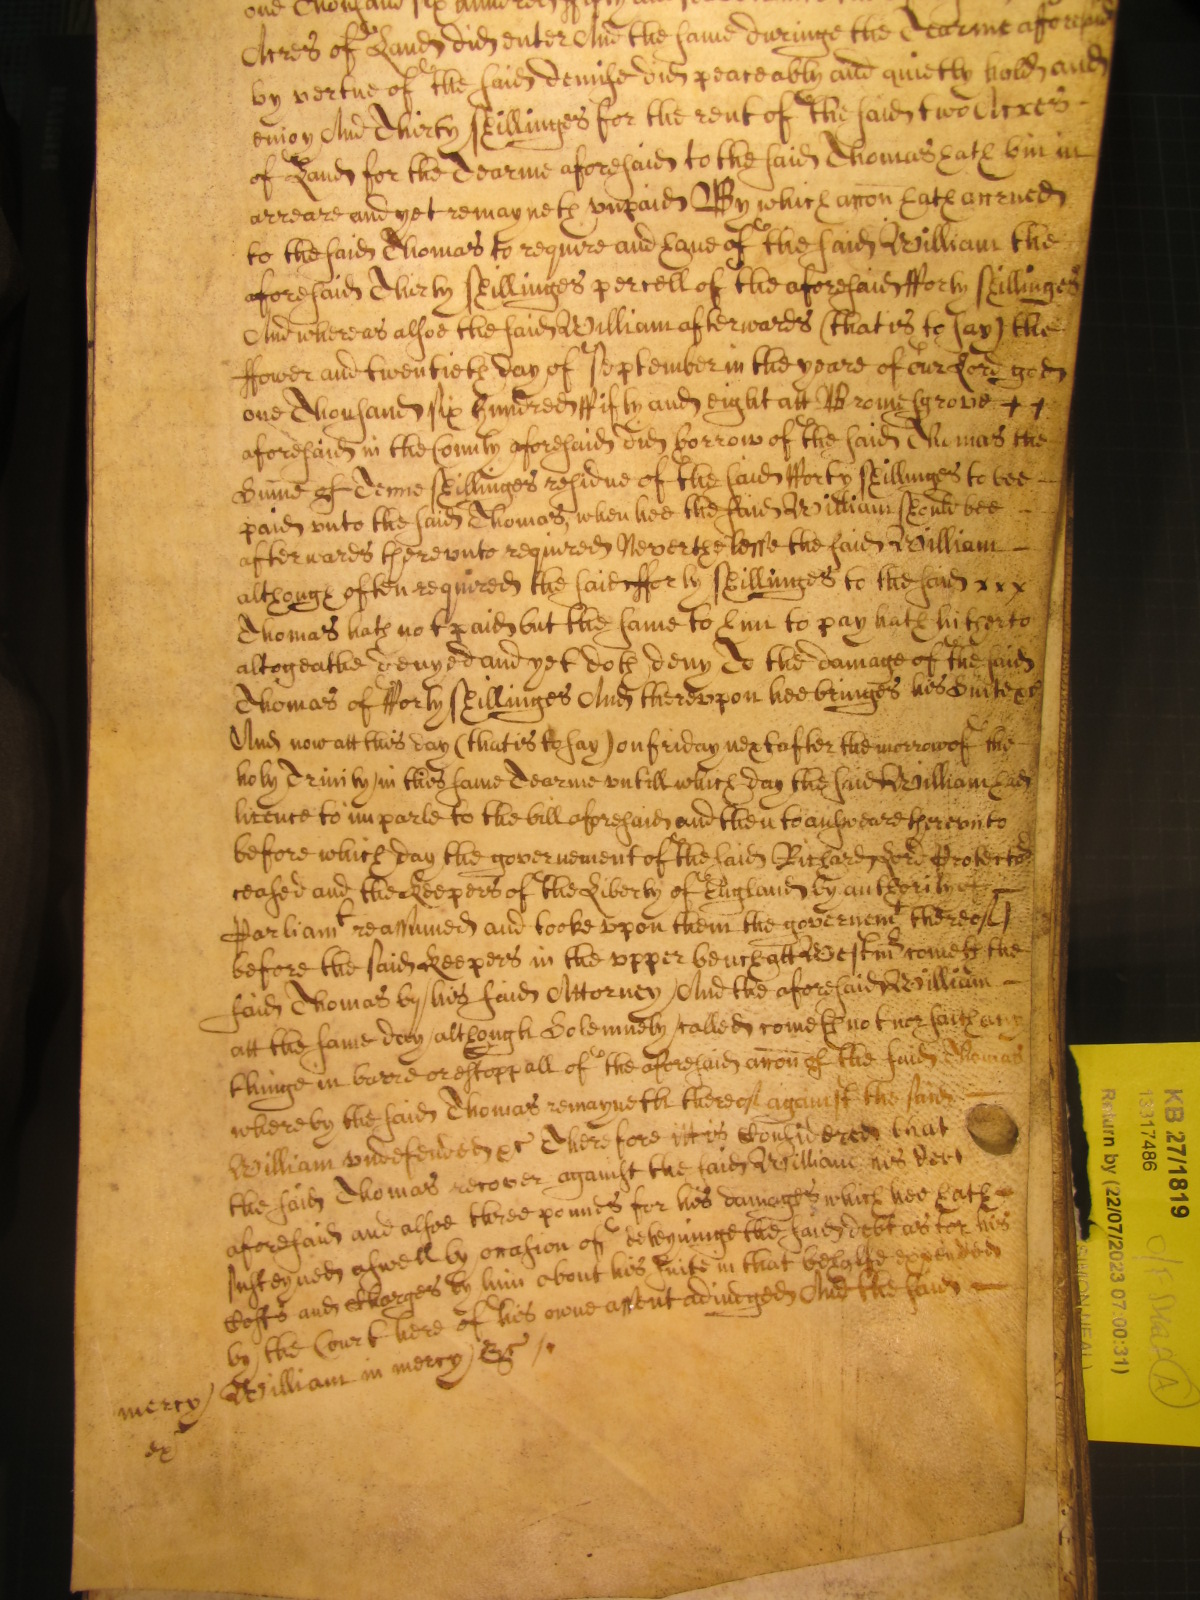 one Thousand six hundred ffifty and
Acres of Land did enter And the same duringe the Tearme aforesaid
by vertue of the said demise did peaceably and quietly hold and
enioy And Thirty shillinges for the rent of the said two Acres -
of Land for the Tearme aforesaid to the said Thomas hath bin in
arreare and yet remayneth vnpaid By which accon hath accrued
to the said Thomas to require and have of the said William the
aforesaid Thirty shillinges percell of the aforesaid fforty shillinges
And whereas alsoe the said William afterwards (that is to say) the
ffower and twentieth day of September in the yeare of our Lord god
one Thousand six hundred ffifty and eight att Bromesgrove ++
aforesaid in the County aforesaid did borrow of the said Thomas the
Sume of Tenne shillinges residue of the said fforty shillinges to bee -
paid vnto the said Thomas, when hee the said William should bee -
afterwards therevnto required Neverthelesse the said William -
although often required the said fforty shillinges to the said xxx
Thomas hath not paid but the same to him to pay hath hitherto
altogeathe denyed and yet doth deny To the damage of the said
Thomas of fforty shillinges And therevpon hee bringes his Suite &c
And now att this day (that is to say) on friday next after the morrow of the
holy Trinity in this same Tearme vntill which day the said William had
licence to imparle to the bill aforesaid and then to answeare therevnto
before which day the governement of the said Richard Lord Protector
ceased and the Keepers of the Liberty of England by authority of -
Parliamt reassumed and tooke vpon them the governemt thereof
before the said Keepers in the vpper bench att Westmr cometh the
said Thomas by his said Attorney And the aforesaid William -
att the same day although Solemnely called cometh not nor saith any
thinge in barre or estoppall of the aforesaid accon of the said Thomas
whereby the said Thomas remayneth thereof against the said -
William vndefended &c Therefore itt is Considered that
the said Thomas recover against the said William his debt
aforesaid and alsoe three pounds for his damages which hee hath
susteyned aswell by occasion of deteyninge the said debt as for his
Costs and Charges by him about his suite in that behalfe expended
by the Court here of his owne assent adiudged And the said -
William in mercy &c
mercy
ex
KB 27/1819
13317486
Return by (22/07/2023 07:00:31)
A